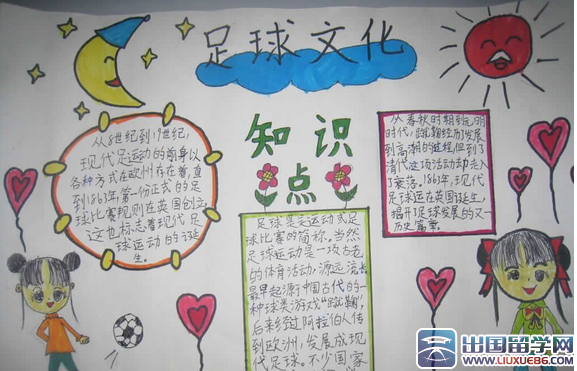 足球文化
知识
点
从8世纪到19世纪,
现代足运动的前身以
各种方式在欧州存在着,直
到1863年第一份正式的足
球比赛规则在英国创立,
这也标志着现代足
球运动的诞
生。
足球是足运动式足
球比赛的简称。当然
足球运动是一项古老
的体育活动,源远流长
最早起源中国古代的一
种球类游戏"蹴鞠",
后来经过阿拉伯人传
到欧洲,发展成现
代足球。不少国家
从春秋时期到明
时代,蹴鞠经历了发展
到高潮的进程但到了
清代这项活动却走入
了衰落。1863年,现代
足球运在英国诞生,
揭开足球发展的又一
历史篇章。
出国留学网
WWW.LIUXUE86.COM